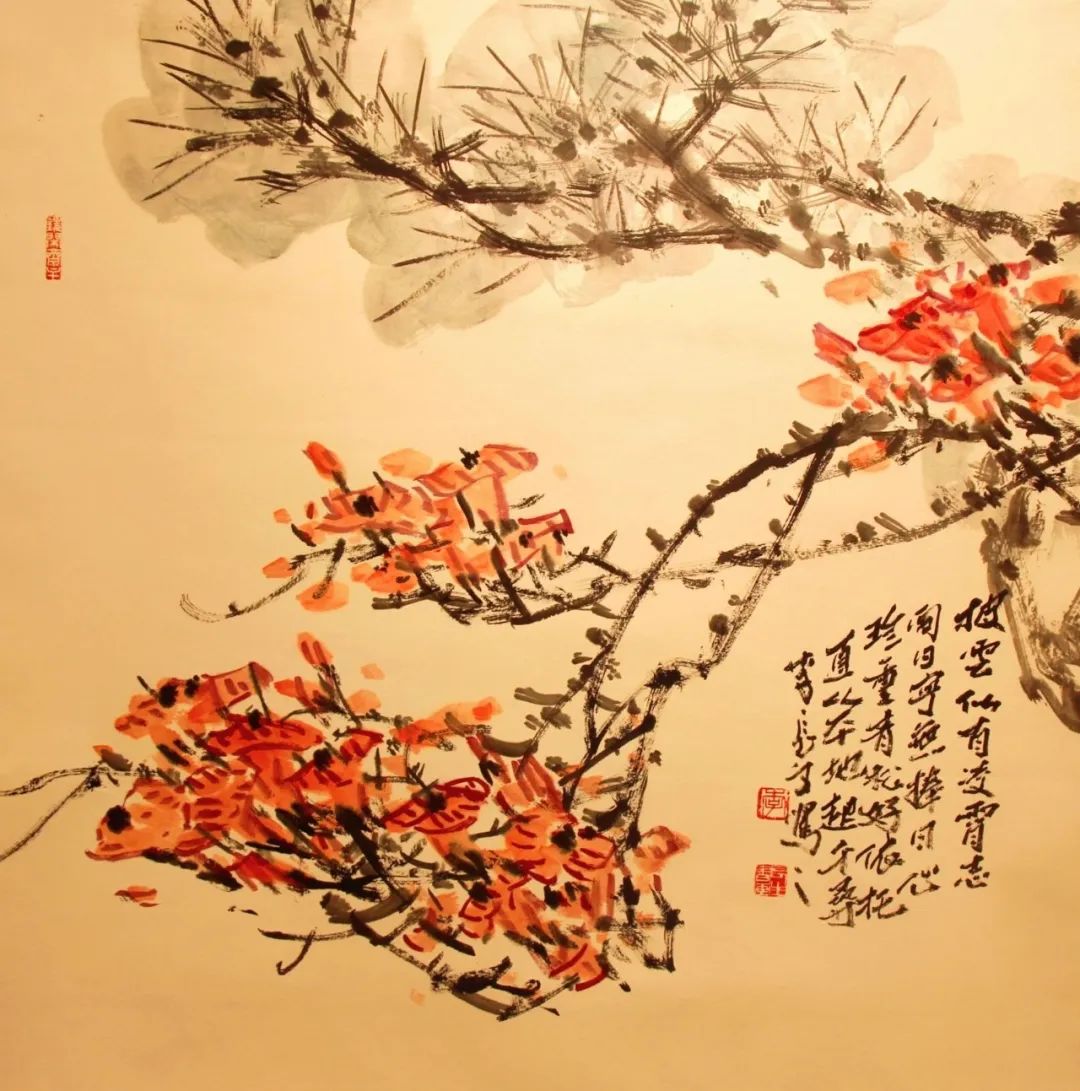 披雲似有凌霄志
向日宁無捧日心
珍重青松好依托
直从平地起千尋
李